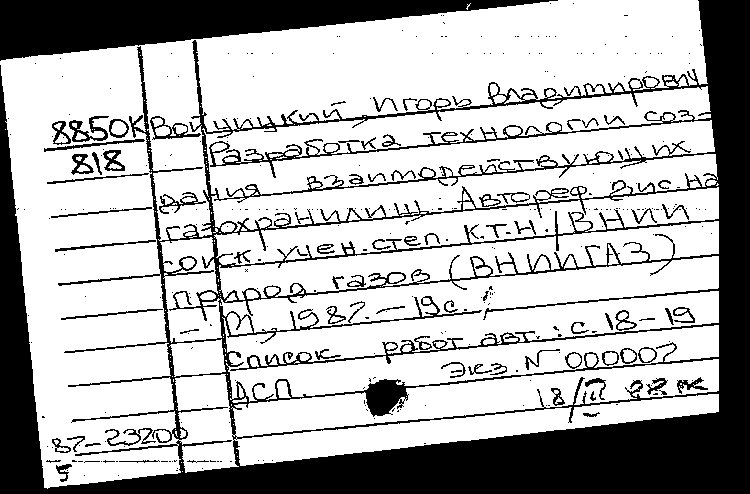 8850К Войцицкий, Игорь Владимирович
818 Разработка технологии соз-
дания взаимодействующих
газохранилищ. Автореф. дис. на
соиск. учен. степ. к.т.н. / ВНИИ
природ. газов (ВНИИГАЗ)
.- М., 1987. - 19с.
Список работ авт.: с. 18-19
ДСП. Экз. N 000007
18/III
87-23200
5